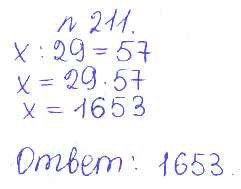 n 211.
x : 29 = 57
x = 29 · 57
x = 1653
Ответ: 1653.